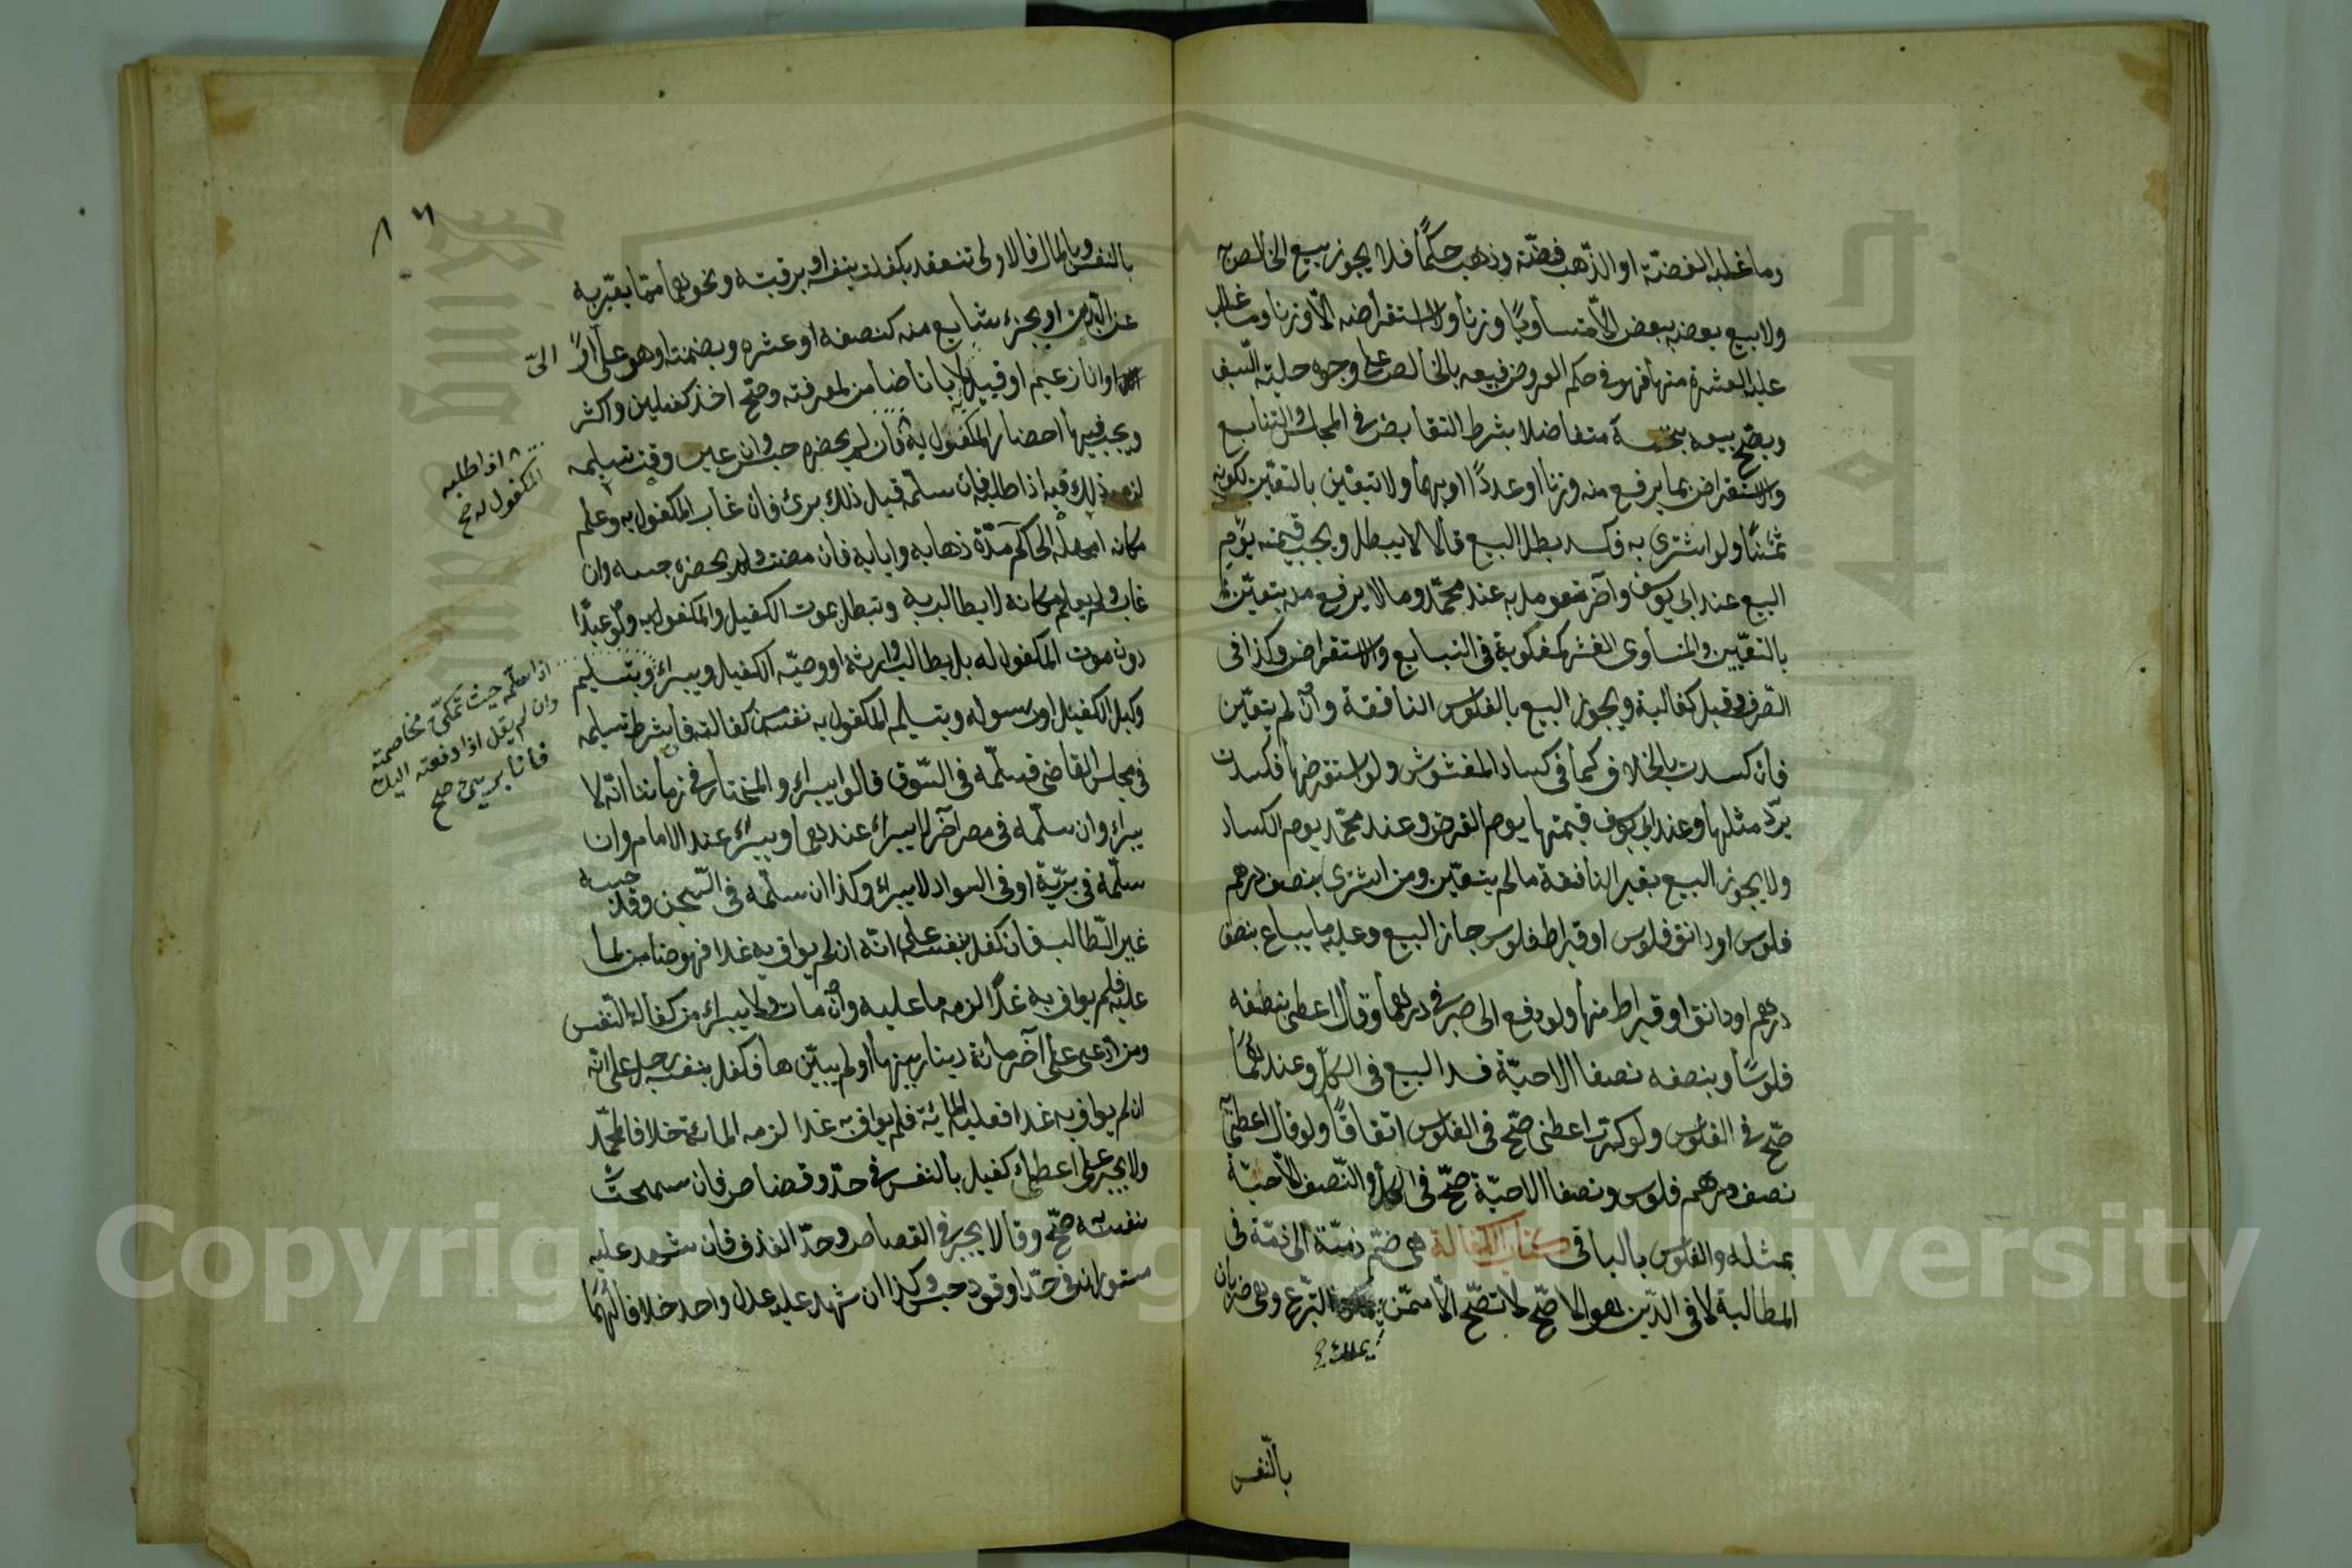 وما غلبه الفضّة او الذّهب فضّة وذهب حكمًا فلا يجوز بيع الخالص به
ولا بيع بعضه ببعض الّا متساويًا وزنا ولا استقراضه الّا وزنا وما غلب
عليه الغش منها فهو في حكم العروض فبيعه بالخالص على وجوه حلية السّيف
ويصحّ بيعه بجنسه متفاضلا بشرط التقابض في المجلس والتبايع
والاستقراض بما يروج منه وزنا او عددًا او بهما ولا يتعيّن بالتعيّن لكونه
ثمنًا ولو اشترى به فكسد بطل البيع قالا لا يبطل ويجب قيمته يوم
البيع عند ابي يوسف وآخر ما تعومل به عند محمّد وما لا يروج منه يتعيّن
بالتعيّين والمتساوى الغش كمغلوبه في التبايع والاستقراض وكذا فى
الصّرف وقيل كغالبه ويجوز البيع بالفلوس النافقة وان لم يتعيّن
فان كسدت بالخلاف كما في كساد المغشوش ولو استقرضها فكسدت
يردّ مثلها وعند ابي يوسف قيمتها يوم القرض وعند محمّد يوم الكساد
ولا يجوز البيع بغير النافقة ما لم يتعيّن ومن اشترى بنصف درهم
فلوس او دانق فلوس او قيراط فلوس جاز البيع وعليه ما يباع بنصف
درهم او دانق او قيراط منها ولو دفع الى صيرفي درهما وقال اعطني بنصفه
فلوسًا وبنصفه نصفا الا حبّة فسد البيع في الكلّ وعندهمَا
صّح في الفلوس ولو كرّر اعطنى صّح في الفلوس اتفاقًا ولو قال اعطني به
نصف درهم فلوس ونصفا الا حبّة صّح في الكل والنّصف الّا حبّة
بمثله والفلوس بالباقى كتاب الكفالة هى ضمّ ذمّة الى ذمّة في
المطالبة لا في الدّين هو الاصّح لا تصّح الّا ممّن التبرّع وهى ضربان
يملك
بالنّفس
بالنفس وبالمال فالاولى تنعقد بكفلت بنفسه او برقبته ونحوهما ممّا يعبّر به
عن البدن او بجزء شايع منه كنصفه او عشره وبضمنته او هو علىّ او الىّ
او انا زعيم او قبيل لا بانا ضامن لمعرفته وصّح اخذ كفيلين واكثر
ويجب فيها احضار المكفول به فان لم يحضره حبس وان عين وقت تسليمه
لزمه ذلك فيه اذا طالبه فان سلّمه قبل ذلك برئ فان غاب المكفول به وعلم
مكانه امهله الحاكم مدّة ذهابه وايابه فان مضت ولم يحضره حبسه وان
غاب ولم يعلم مكانه لا يطالب به وتبطل بموت الكفيل والمكفول به ولو عبدًا
دون موت المكفول له بل يطالب وارثه او وصيّه الكفيل ويبراء وبتسليم
وكيل الكفيل او رسوله وبتسليم المكفول به نفسه من كفالته فان شرط تسليمه
في مجلس القاضى فسلّمه في السّوق قالوا يبراء والمختار في زماننا انّه لا
يبراء وان سلّمه في مصر آخر لا يبراء عندهما ويبراء عند الامام وان
سلّمه في بريّة او في السواد لا يبراء وكذا ان سلّمه في السّجن وقد حبسه
غير الطّالب فان كفل بنفسه على انّه ان لم يواف به غدا فهو ضامن لما
عليه فلم يواف به غدًا لزمه ما عليه وان مات ولا يبراء من كفالة النّفس
ومن ادّعى على آخر مائة دينار بينها او لم يبيّنها فكفل بنفسه رجل على انّه
ان لم يواف به غدا فعليه المائة فلم يواف به غدا لزمه المائة خلافا لمحمّد
ولا يجبر على اعطاء كفيل بالنفس في حدّ وقصاص فان سمحت
نفسه صّح وقالا يجبر في القصاص وحدّ القذف فان شهد عليه
مستوران في حدّ او قود حبس وكذا ان شهد عليه عدل واحد خلافا لهمَا
اذا طلبه
المكفول له صح
اذا سلّمه حيث تمكن مخاصمته
وان لم يقل اذا دفعته اليك
فانا برىء صح